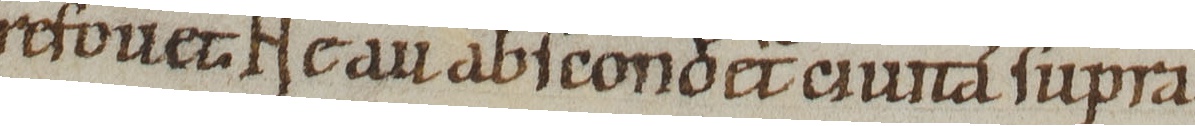 refouet. Nec au abscondet ciuitá supra